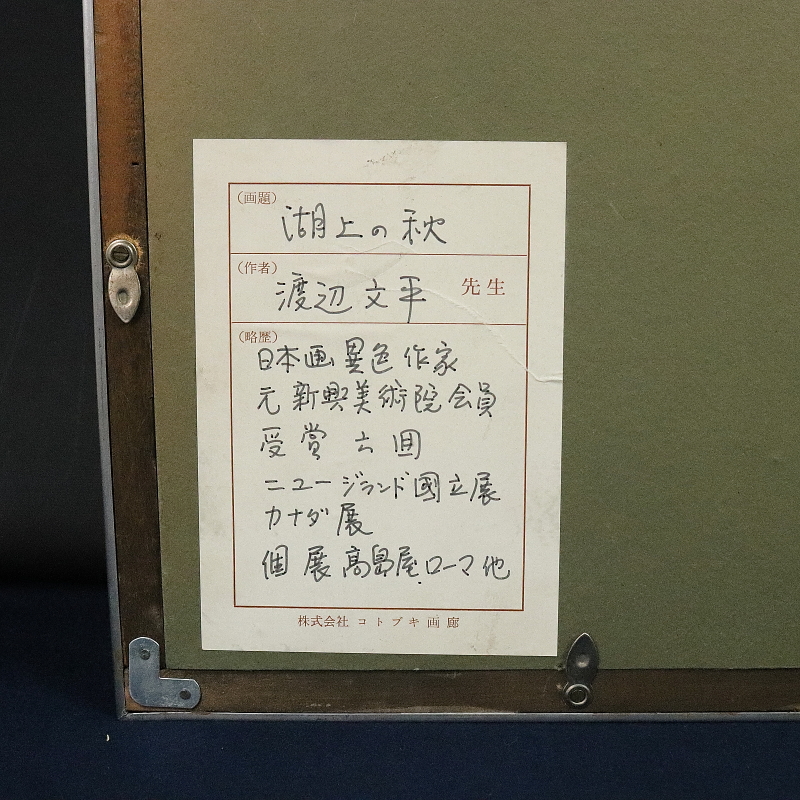 （画題）
湖上の秋
（作者）
渡辺文平 先生
（略歴）
日本画異色作家
元 新興美術院会員
受賞 六回
ニュージランド國立展
カナダ展
個展 高島屋.ローマ他
株式会社 コトブキ画廊